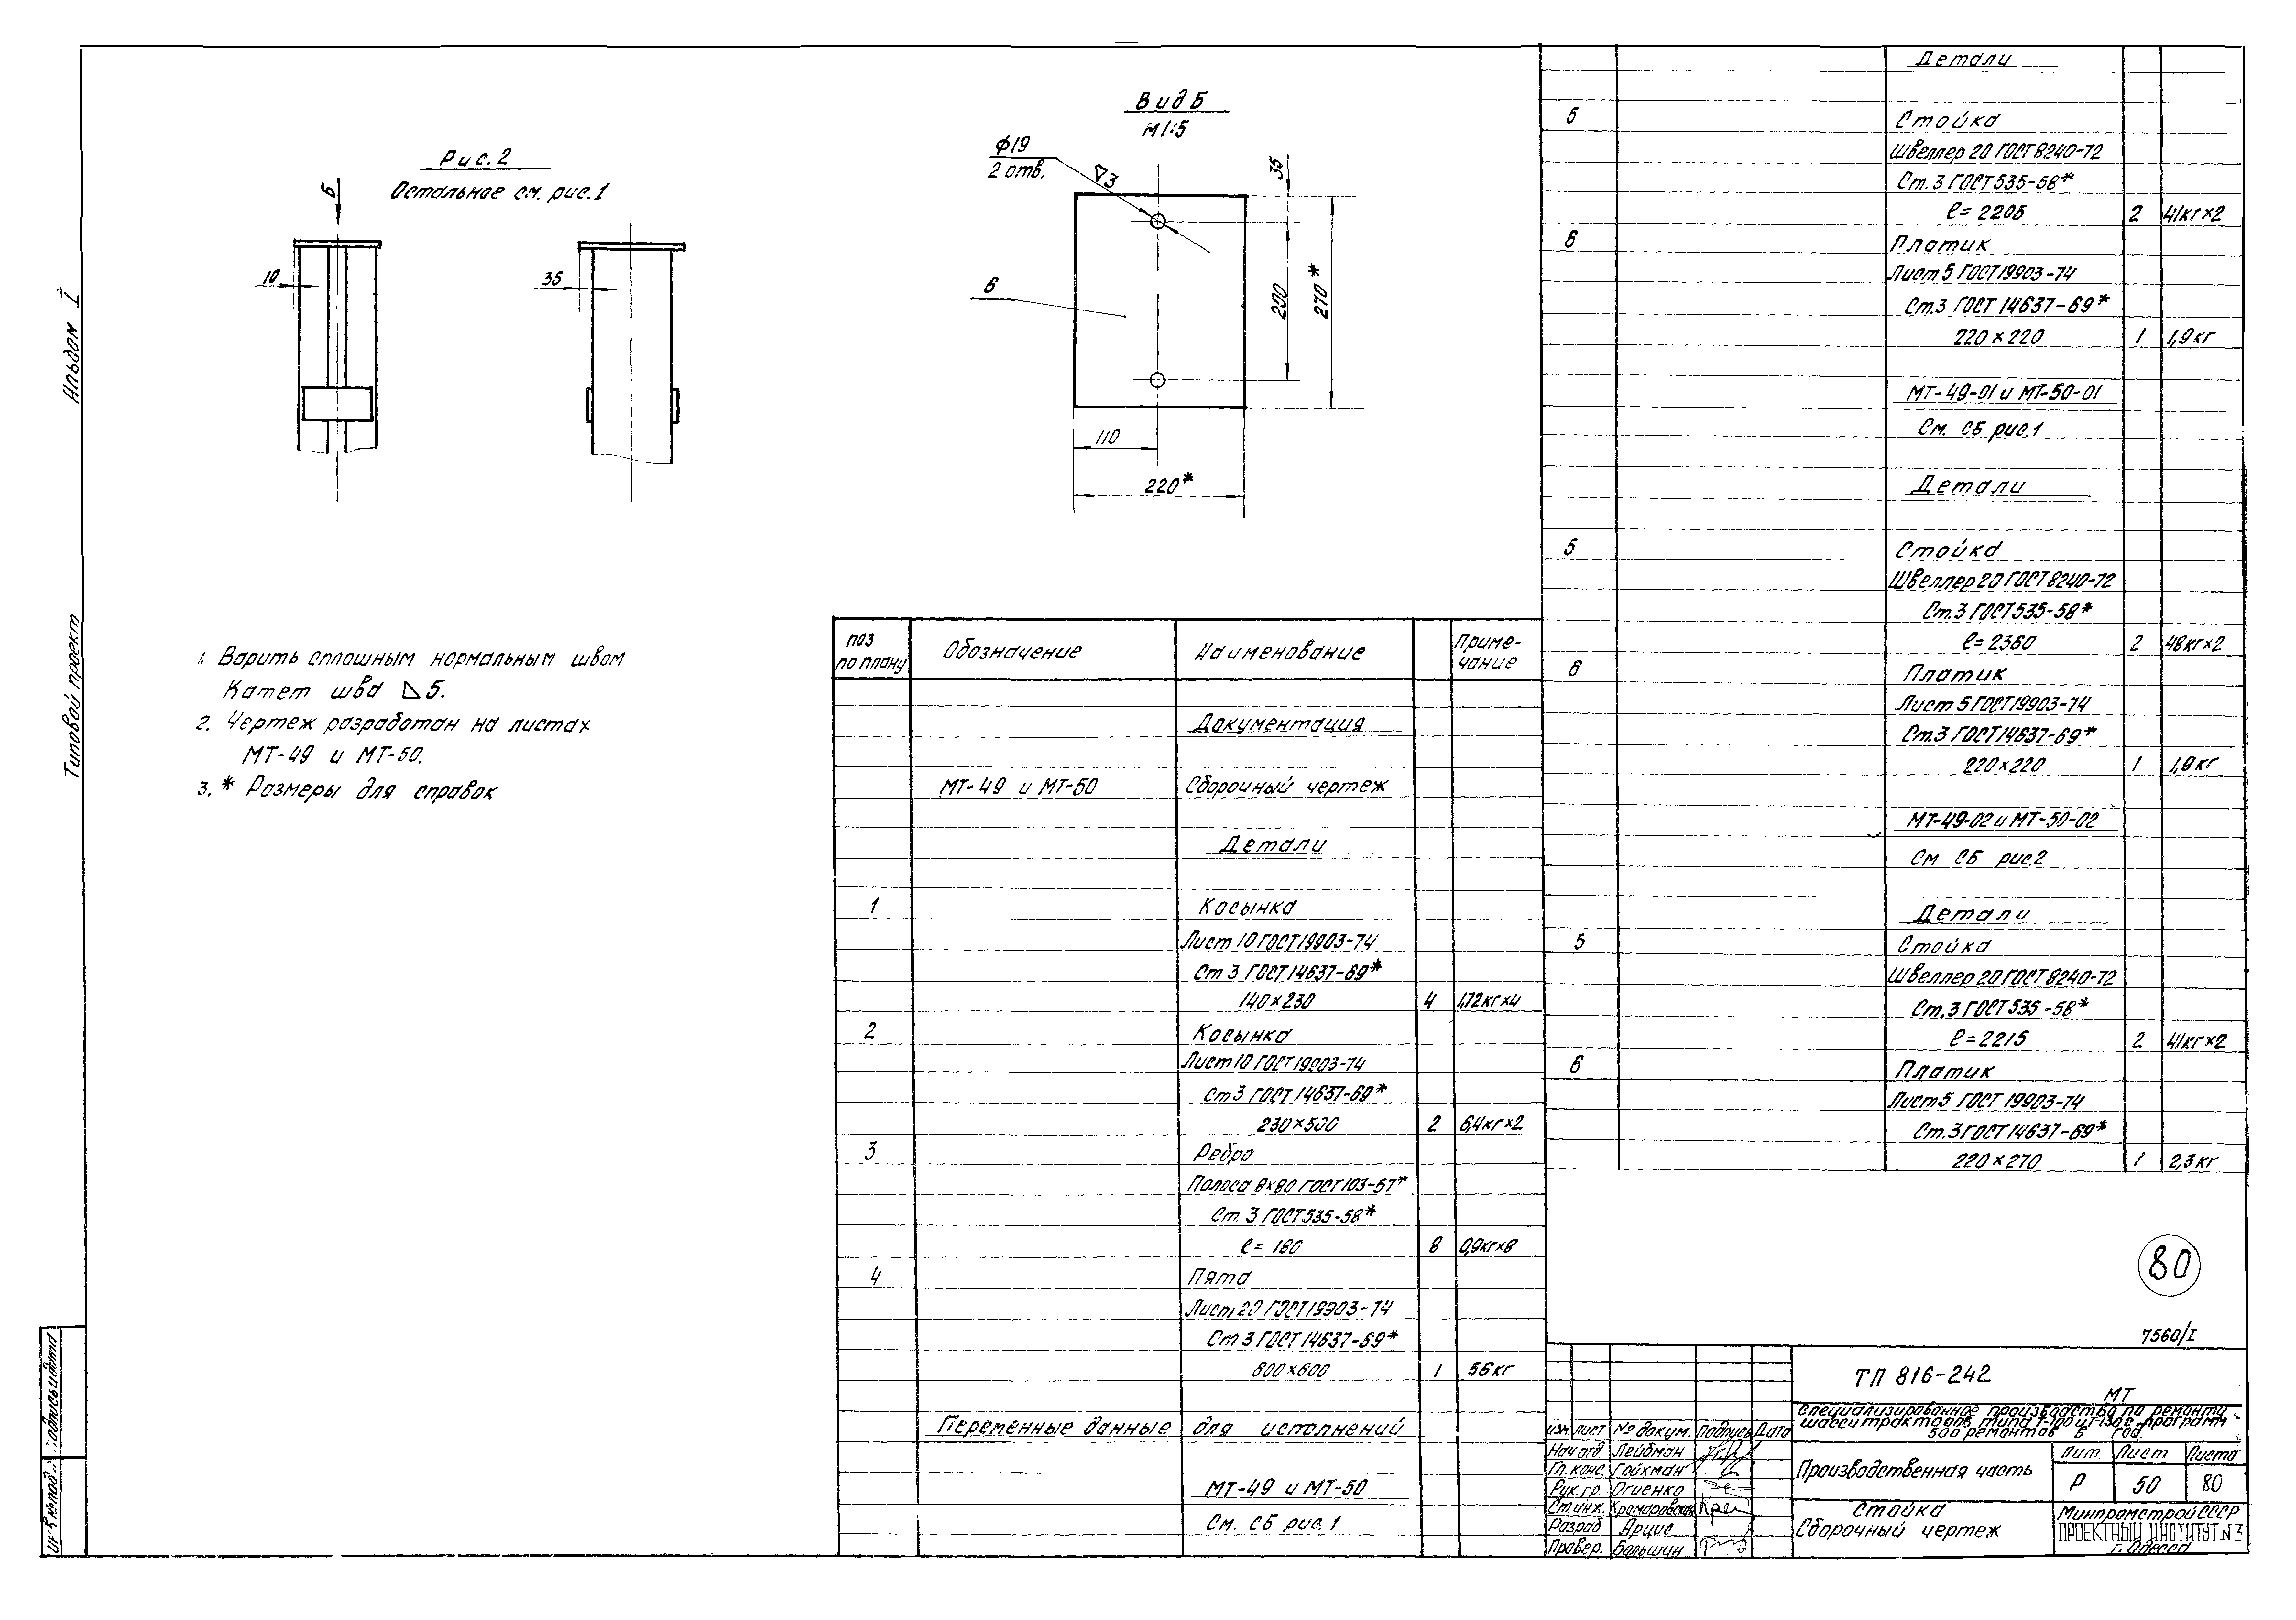 Альбом I
Типовой проект
Рис. 2
Остальное см. рис. 1
Б
10
35
Вид Б
М 1:5
ф19
2 отв.
3
6
35
200
270*
110
220*
1. Варить сплошным нормальным швом
Катет шва 5.
2. Чертеж разработан на листах
МТ-49 и МТ-50.
3. * Размеры для справок
поз по плану Обозначение Наименование Примечание
Документация
МТ-49 и МТ-50 Сборочный чертеж
Детали
1 Косынка
Лист 10 ГОСТ 19903-74
Ст 3 ГОСТ 14637-69*
140×230 4 1,72кг×4
2 Косынка
Лист 10 ГОСТ 19903-74
Ст 3 ГОСТ 14637-69*
230×500 2 6,4кг×2
3 Ребро
Полоса 8×80 ГОСТ 103-57*
Ст. 3 ГОСТ 535-58*
ℓ= 180 8 0,9кг×8
4 Пята
Лист 20 ГОСТ 19903-74
Ст 3 ГОСТ 14637-69*
600×600 1 56 кг
Переменные данные для исполнений
МТ-49 и МТ-50
См. СБ рис. 1
Детали
5 Стойка
Швеллер 20 ГОСТ 8240-72
Ст. 3 ГОСТ 535-58*
ℓ= 2205 2 41кг×2
6 Платик
Лист 5 ГОСТ 19903-74
Ст.3 ГОСТ 14637-69*
220×220 1 1,9кг
МТ-49-01 и МТ-50-01
См. СБ рис.1
Детали
5 Стойка
Швеллер 20 ГОСТ 8240-72
Ст.3 ГОСТ 535-58*
ℓ= 2360 2 48кг×2
6 Платик
Лист 5 ГОСТ 19903-74
Ст.3 ГОСТ 14637-69*
220×220 1 1,9кг
МТ-49-02 и МТ-50-02
См СБ рис.2
Детали
5 Стойка
Швеллер 20 ГОСТ 8240-72
Ст.3 ГОСТ 535-58*
ℓ=2215 2 41кг×2
6 Платик
Лист 5 ГОСТ 19903-74
Ст.3 ГОСТ 14637-69*
220×270 1 2,3 кг
80
7560/I
ТП 816-242
МТ
Специализированное производство по ремонту
шасси тракторов типа Т-100 и Т-130 с программ
500 ремонтов в год
изм лист № докум. Подпись Дата
Нач. отд. Лейбман
Гл. конс. Гойхман
Рук. гр. Огиенко
Ст инж. Крамаровская
Разраб Арцис
Провер. Большун
Производственная часть
Лит. Лист Листо
Р 50 80
Стойка
Сборочный чертеж
Минпромстрой СССР
ПРОЕКТНЫЙ ИНСТИТУТ №3
г. Одесса